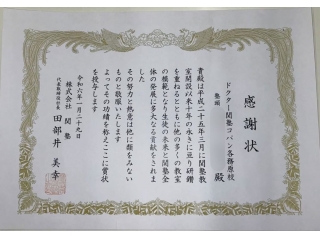 感謝状
ドクター関塾コパン各務原校
塾 殿
貴殿は平成二十五年三月に関塾教
室開設以来十年の永きに亘り研鑽
を重ねるとともに他の多くの教室
の模範となり生徒の未来と関塾全
体の発展に多大なる貢献をされま
した
その努力と熱意は他に類をみない
ものと敬服いたします
よってその功績を称えここに賞状
を授与します
令和六年一月二十九日
株式会社 関塾
代表取締役社長 田部井 美幸